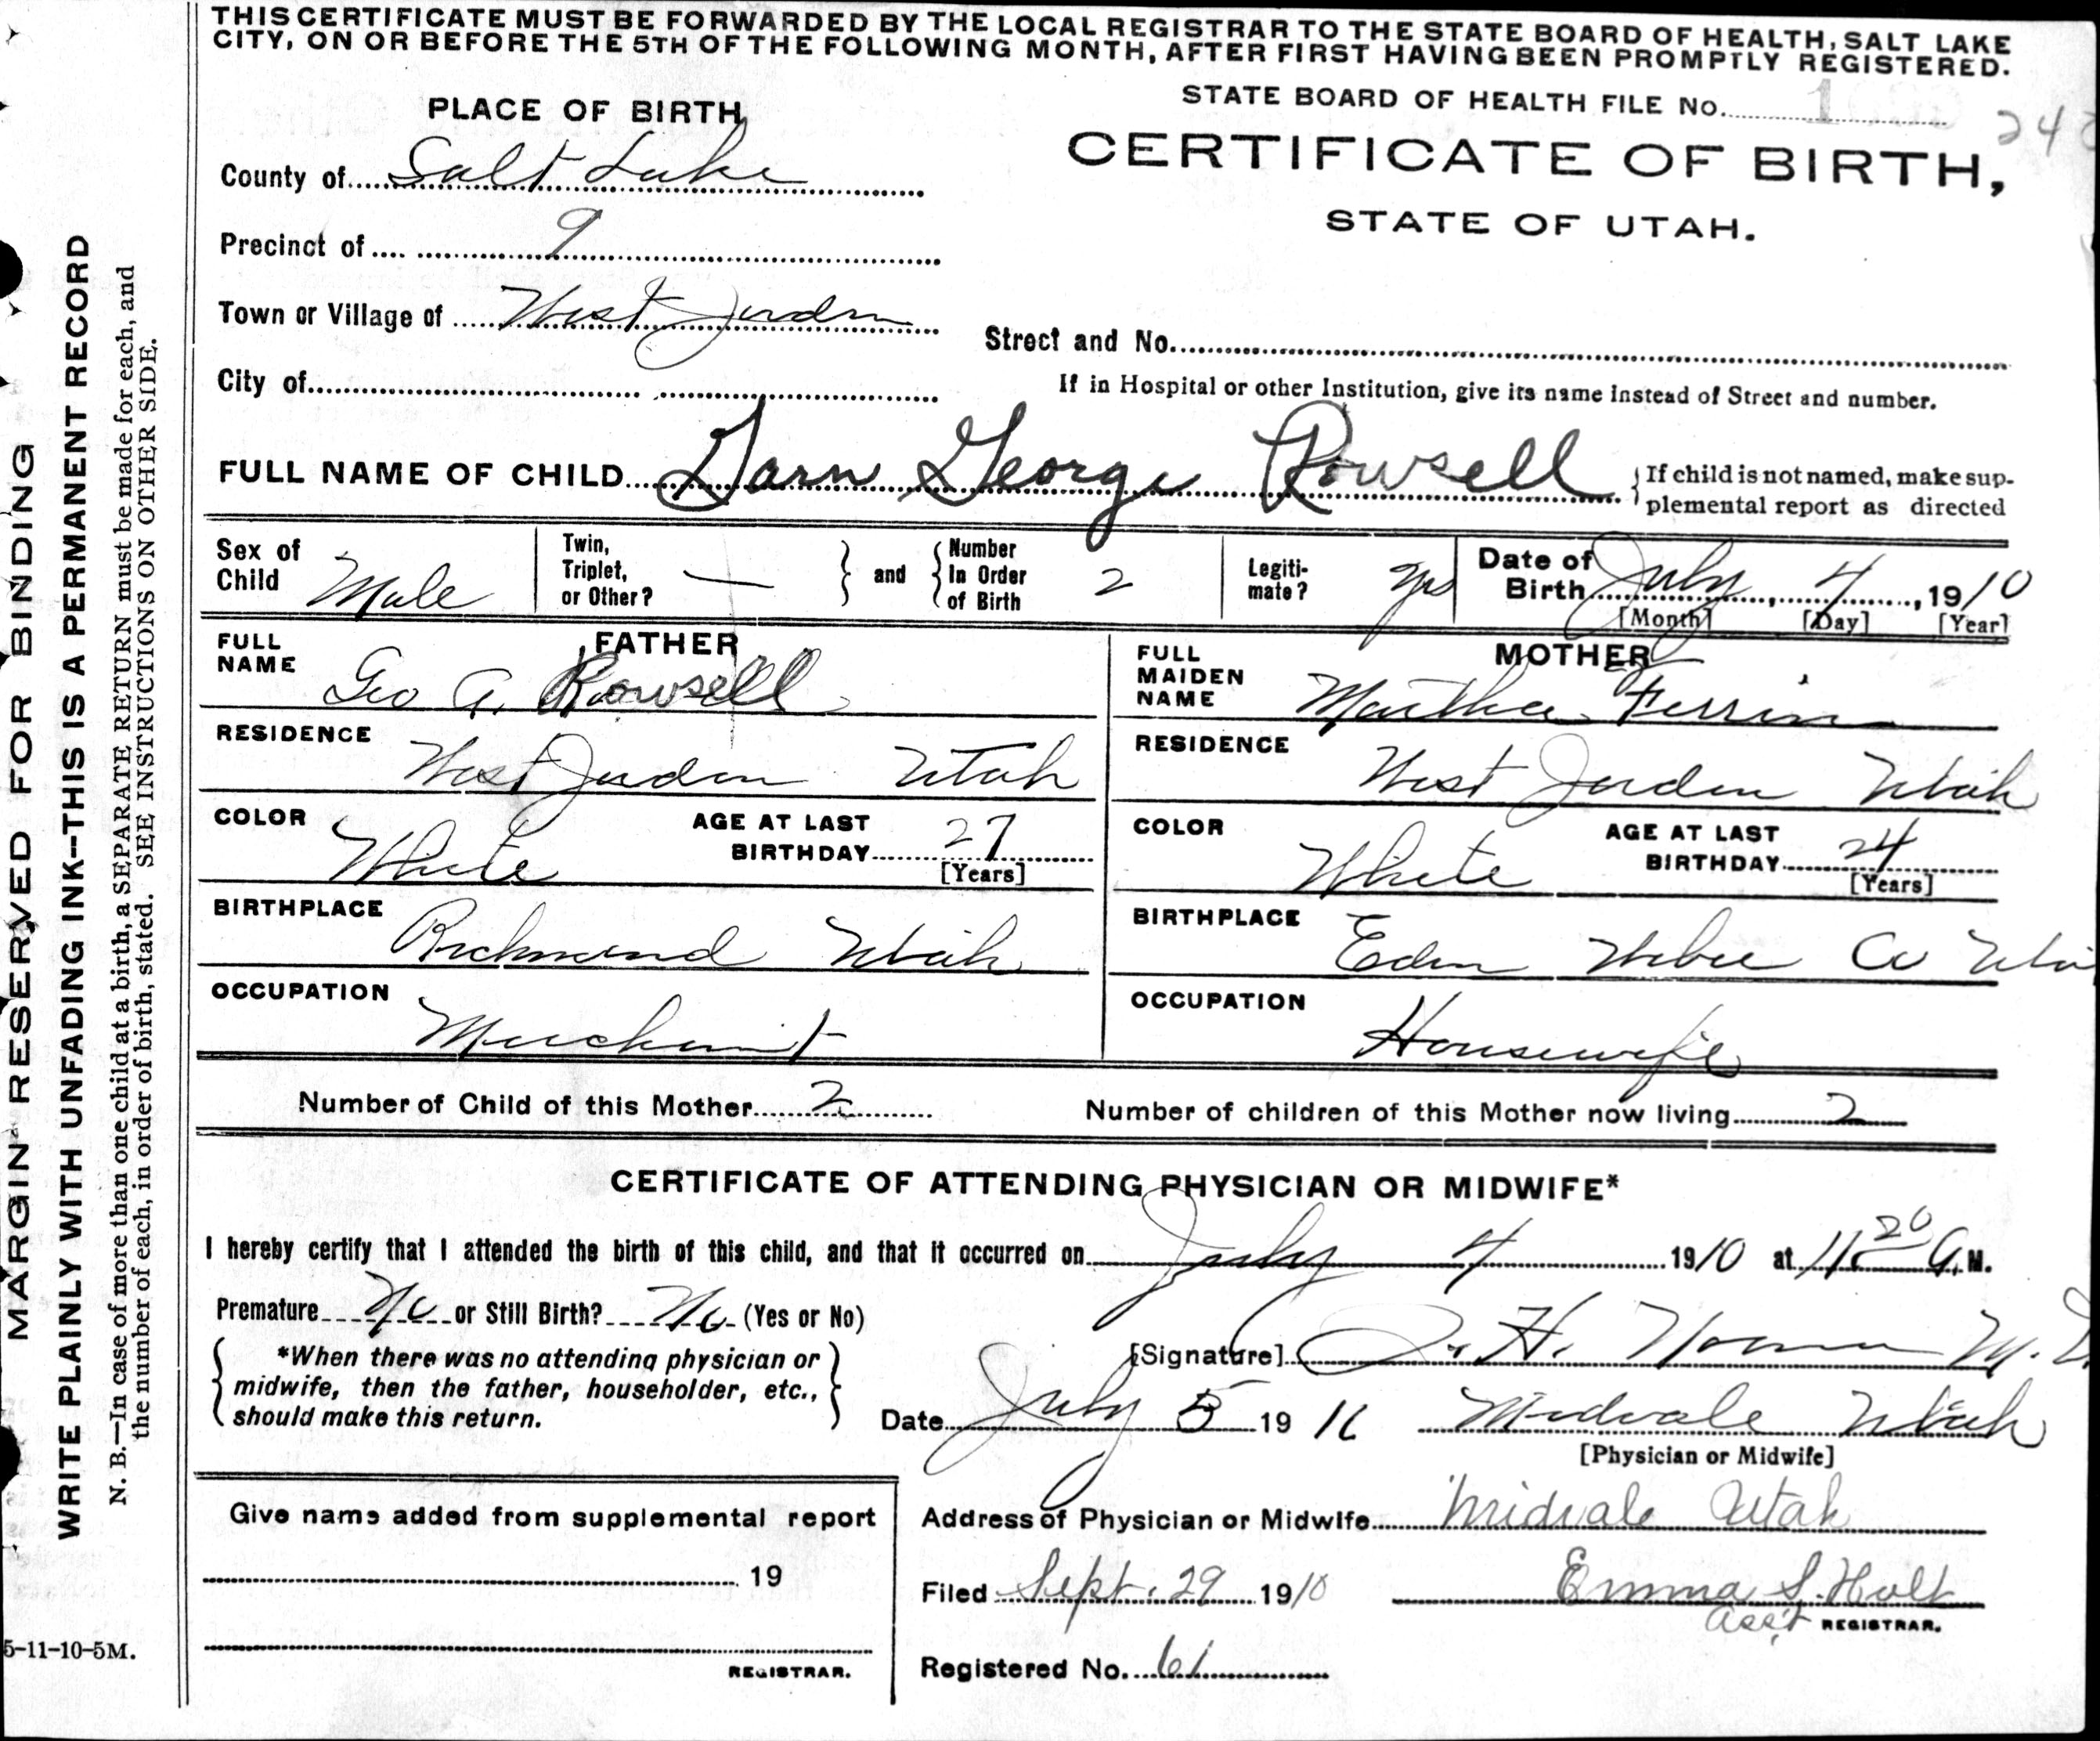 THIS CERTIFICATE MUST BE FORWARDED BY THE LOCAL REGISTRAR TO THE STATE BOARD OF HEALTH, SALT LAKE
CITY, ON OR BEFORE THE 5TH OF THE FOLLOWING MONTH, AFTER FIRST HAVING BEEN PROMPTLY REGISTERED.
STATE BOARD OF HEALTH FILE No.
24
PLACE OF BIRTH
CERTIFICATE OF BIRTH,
STATE OF UTAH.
County of Salt Lake
Precinct of 9
Town or Village of West Jordan
Street and No.
City of
If in Hospital or other Institution, give its name instead of Street and number.
FULL NAME OF CHILD George Rowsell
If child is not named, make sup-
plemental report as directed
Sex of Child Male
Twin, Triplet, or Other? —
and Number In Order of Birth 2
Legiti-mate? yes
Date of Birth July, 4, 1910
[Month] [Day] [Year]
FATHER
FULL NAME Geo A. Rowsell
RESIDENCE West Jordan Utah
COLOR White
AGE AT LAST BIRTHDAY 27
[Years]
BIRTHPLACE Richmond Utah
OCCUPATION Merchant
MOTHER
FULL MAIDEN NAME Martha Ferrin
RESIDENCE West Jordan Utah
COLOR White
AGE AT LAST BIRTHDAY 24
[Years]
BIRTHPLACE Eden Weber Co
OCCUPATION Housewife
Number of Child of this Mother 2
Number of children of this Mother now living 2
CERTIFICATE OF ATTENDING PHYSICIAN OR MIDWIFE*
I hereby certify that I attended the birth of this child, and that it occurred on July 4 1910 at 11:20 A.M.
Premature No or Still Birth? No (Yes or No)
*When there was no attending physician or
midwife, then the father, householder, etc.,
should make this return.
[Signature] H. M.D
Date July 5 19
Midvale Utah
[Physician or Midwife]
Give name added from supplemental report
19
REGISTRAR.
Address of Physician or Midwife Midvale Utah
Filed Sept. 29 1910
Emma S. Holt
Ass't REGISTRAR.
Registered No. 61
MARGIN RESERVED FOR BINDING
WRITE PLAINLY WITH UNFADING INK--THIS IS A PERMANENT RECORD
N. B.—In case of more than one child at a birth, a SEPARATE RETURN must be made for each, and
the number of each, in order of birth, stated. SEE INSTRUCTIONS ON OTHER SIDE.
5-11-10-5M.